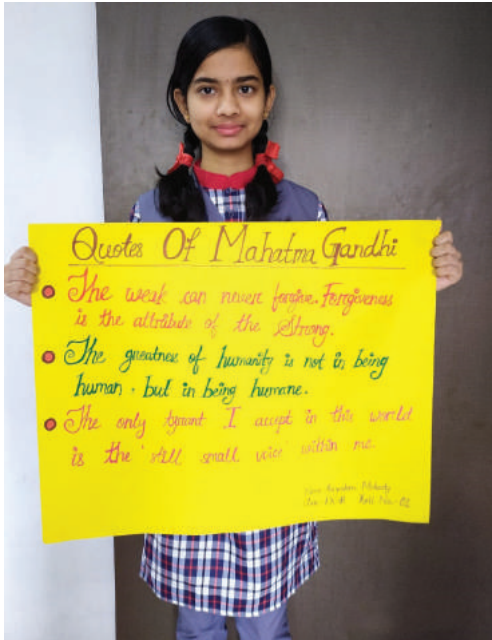 Quotes Of Mahatma Gandhi
The weak can never forgive. Forgiveness
is the attribute of the Strong.
The greatness of humanity is not in being
human, but in being humane.
The only tyrant I accept in this world
is the 'still small voice' within me.
Mohanty
Roll No.-02